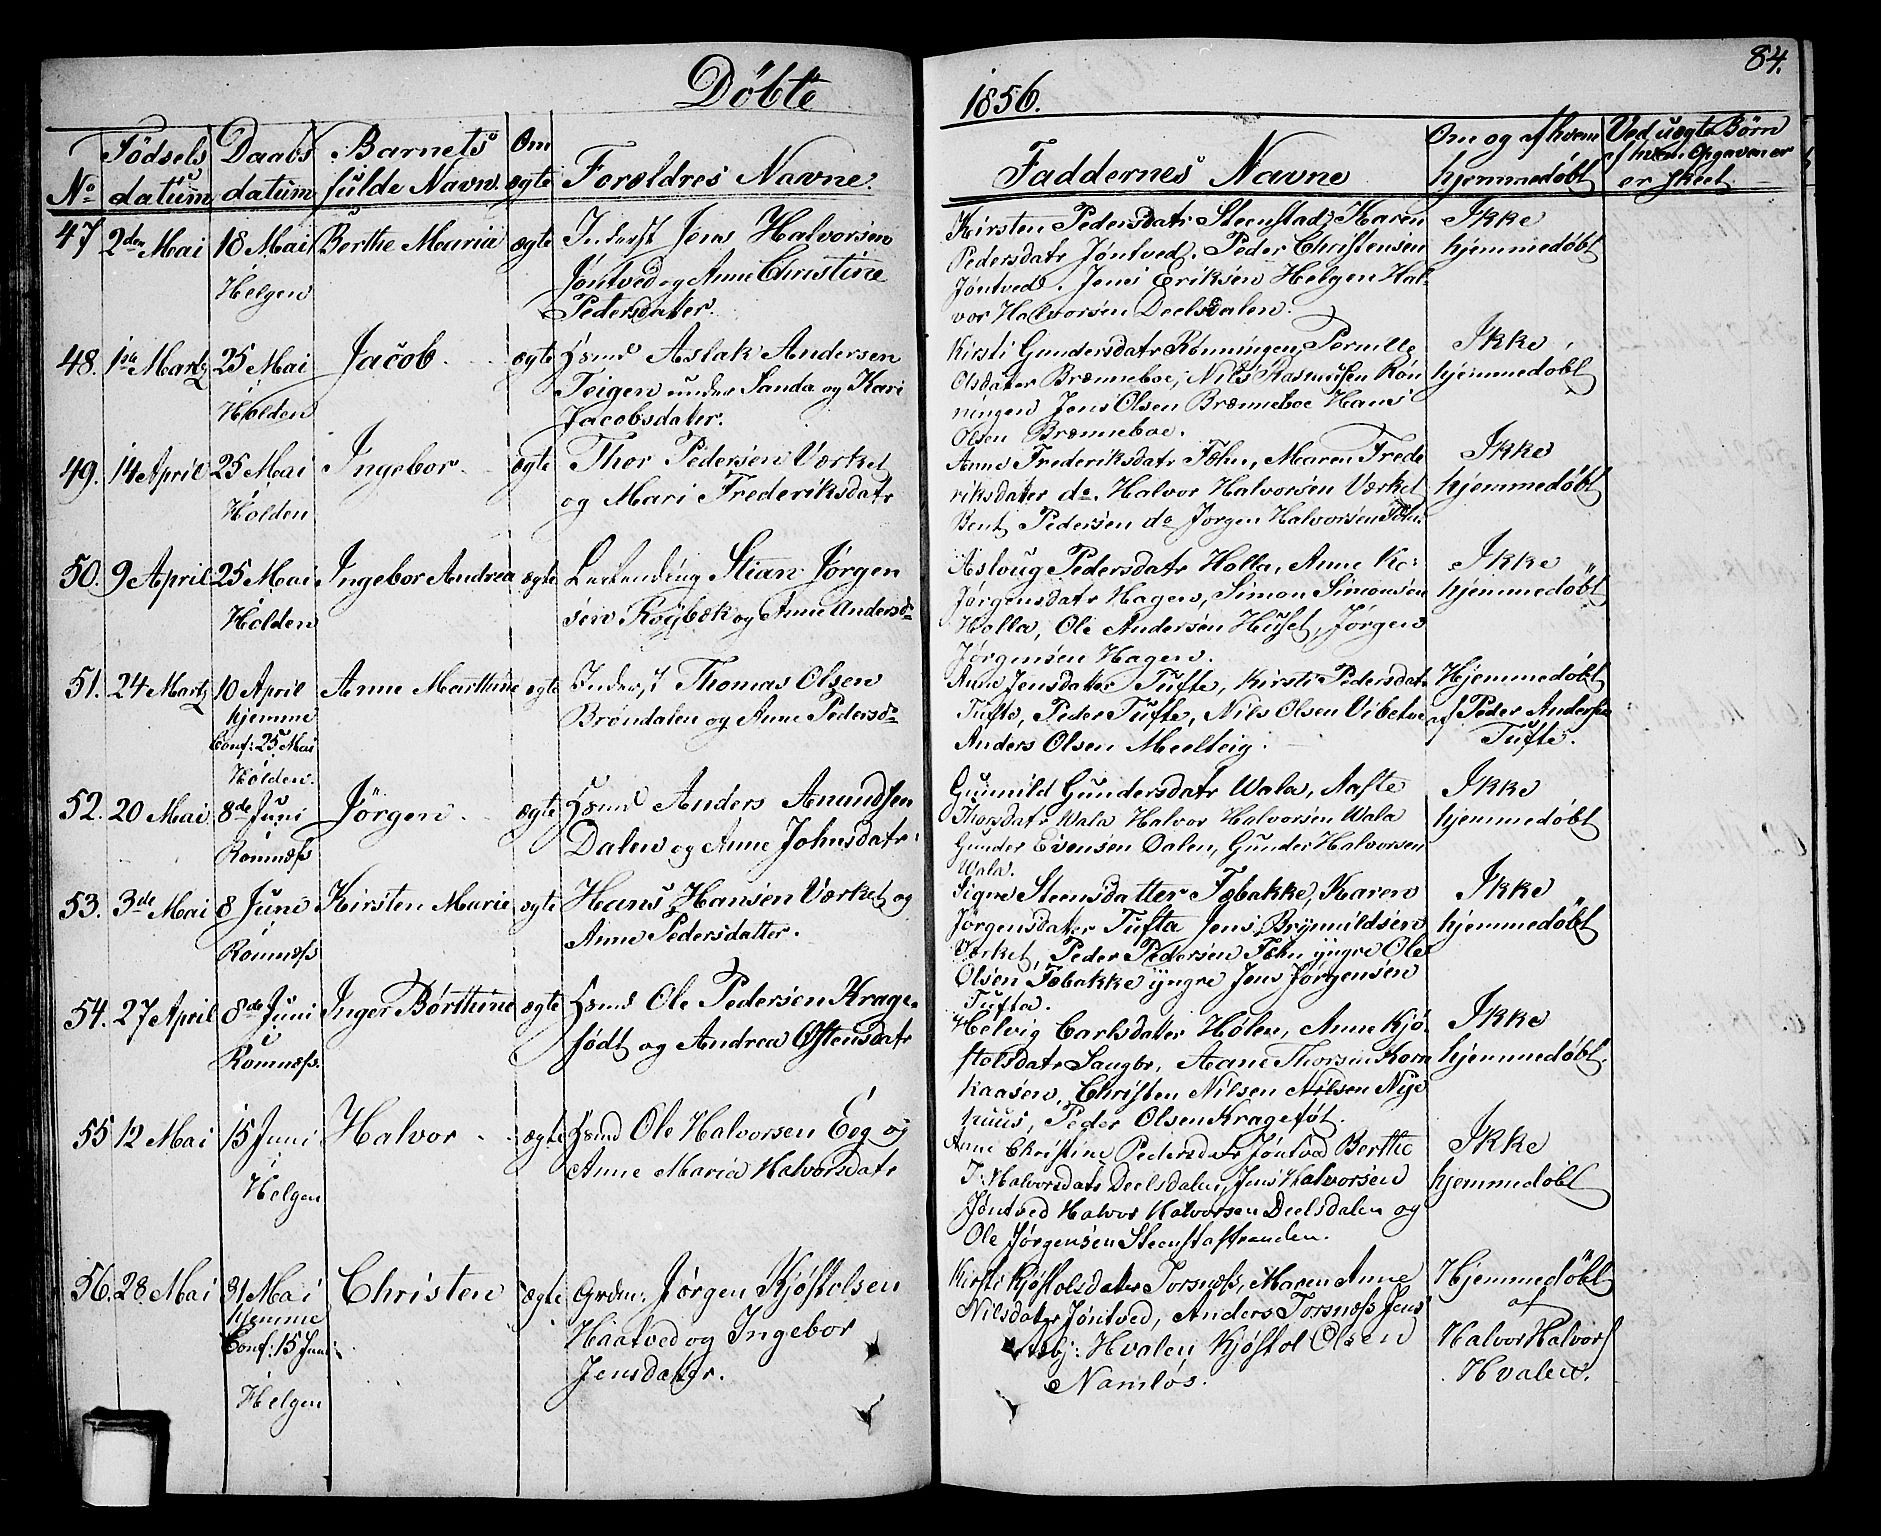 Döbte
1856.
84.
No
Födsels datum
Daabs datum
Barnets fulde Navn.
Om ægte
Forældres Navne.
Faddernes Navne
Om og af hvem hjemmedöbt
Ved uægte Börn af hvem Opgaven er er skeet
47
2den Mai
18 Mai
Helgen
Berthe Maria
ægte
Inderst Jens Halvorsen
Jöntved og Anne Christine
Pedersdatter.
Kirsten Pedersdatr Steenstad, Karen
Pedersdatr Jöntved, Peder Christensen
Jöntved. Jens Eriksen Helgen Hal-
vor Halvorsen Deelsdalen.
Ikke
hjemmedöbt
48.
1ste Martz
25 Mai
Holden
Jacob
ægte
Hsmd Aslak Andersen
Teigen under Sanda og Kari
Jacobsdater.
Kirsti Gundersdatr Rönningen, Pernille
Olsdater Brænneboe, Nils Rasmusen Rön
ningen Jens Olsen Brænneboe Hans
Olsen Brænneboe.
Ikke
hjemmedöbt
49.
14 April
25 Mai
Holden
Ingebor
ægte
Thor Pedersen Værket
og Mari Frederiksdatr
Anne Frederiksdatr Fæhn, Maren Frede
riksdater do. Halvor Halvorsen Værket
Bent Pedersen do Jörgen Halvorsen
Ikke
hjemmedöbt
50.
9 April
25 Mai
Holden
Ingebor Andrea
ægte
Stian Jörgen
sen Röybæk og Anne Andersdr
Asloug Pedersdatr Holla, Anne Ka:
Jörgensdatr Hagen, Simon Simonsen
Holla, Ole Andersen Huset, Jörgen
Jörgensen Hagen.
Ikke
hjemmedöbt
51.
24 Martz
10 April
hjemme
Conf: 25 Mai
Holden.
Anne Marthine
ægte
Inderst Thomas Olsen
Bröndalen og Anne Pedersdr
Anne Jensdatter Tufte, Kirsti Pedersdatr
Tufte, Peder Tufte, Nils Olsen Vibetoe
Anders Olsen Meelteig.
Hjemmedöbt
af Peder Andersen
Tufte.
52.
20 Mai
8de Juni
Romnæss
Jörgen
ægte
Hsmd Anders Amundsen
Dalen og Anne Johnsdatr.
Gunnild Gundersdatr Wala, Aaste
Thorsdatr Wala Halvor Halvorsen Wala
Gunder Evensen Dalen, Gunder Halvorsen
Wala.
Ikke
hjemmedöbt
53.
3de Mai
8 June
Romnæss
Kirsten Marie
ægte
Hans Hansen Værket og
Anne Pedersdatter.
Signe Steensdatter Fæbakke, Karen
Jörgensdater Tufta Jens Brynnildsen
Værket, Peder Pedersen Fæhn yngre Ole
Olsen Fæbakke yngre Jens Jörgensen
Tufta.
Ikke
hjemmedöbt
54.
27 April
8de Juni
Romnæss.
Inger Börthine
ægte
Hsmd Ole Pedersen Krage-
födt og Andrea Östensdatr
Helvig Carlsdatter Holen, Anne Kjö-
stolsdatr Saugbr, Aane Thorsen Korn
kaasen, Christen Nilsen Nilsen Nye
huus, Peder Olsen Krageföt.
Ikke
hjemmedöbt.
55
12 Mai
15 Juni
Helgen
Halvor
ægte
Hsmd Ole Halvorsen Eeg og
Anne Maria Halvorsdatr
Anne Christine Pedersdatr Jöntved Berthe
I: Halvorsdatr Deelsdalen, Jens Halvorsen
Jöntved Halvor Halvorsen Deelsdalen og
Ole Jörgensen Steenstastranden.
Ikke
hjemmedöbt
56.
28 Mai
31 Mai
hjemme
Conf: 15 Juni
Helgen
Christen
ægte
Grdm: Jörgen Kjöstolsen
Haatved og Ingebor
Jensdater.
Kirsti Kjöstolsdater Torsnæss, Maren Anne
Nilsdater Jöntved, Anders Torsnæss Jens
Hvalen Kjöstol Olsen
Namlös.
Hjemmedöbt
af
Halvor Halvors
Hvalen.